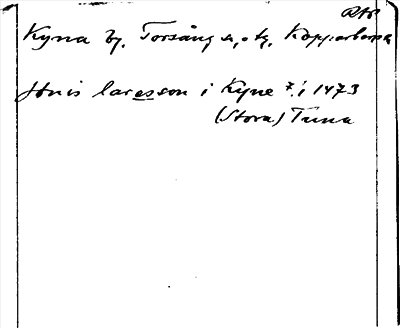 RAP
Kyna by, Torsång sn o tg, Kopparbergs
Jönis laresson i Kyne 7/1 1473
(Stora) Tuna